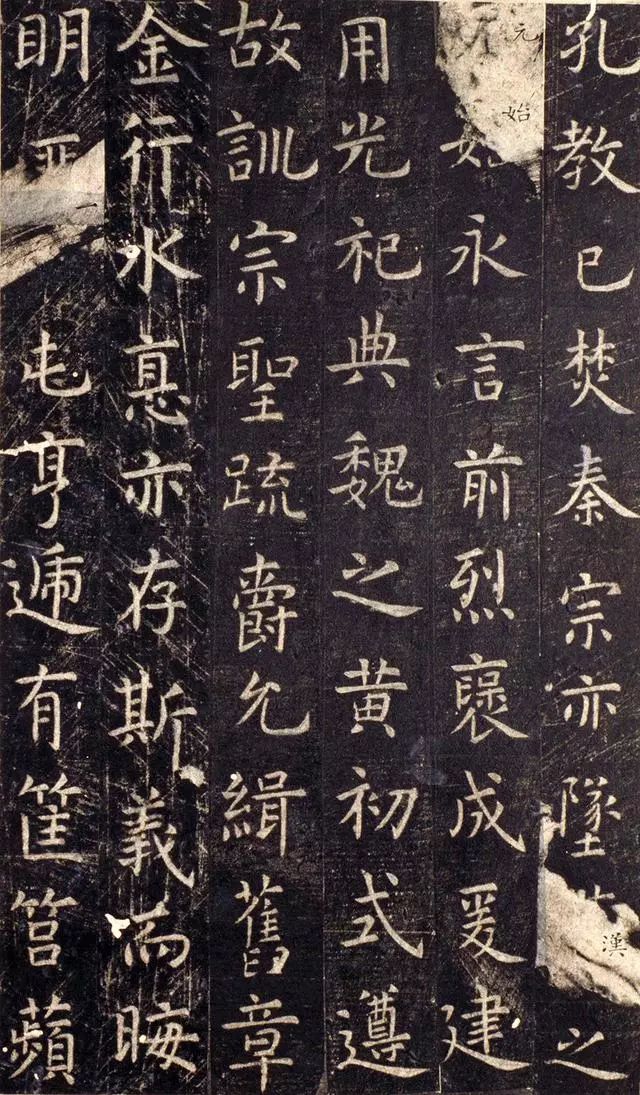 孔教已焚秦宗亦墜漢之
元始永言前烈褒成爰建
用光祀典魏之黄初式遵
故訓宗聖疏爵允緝舊章
金行水悳亦存斯義而晦
明匪一屯亨遞有筐筥蘋